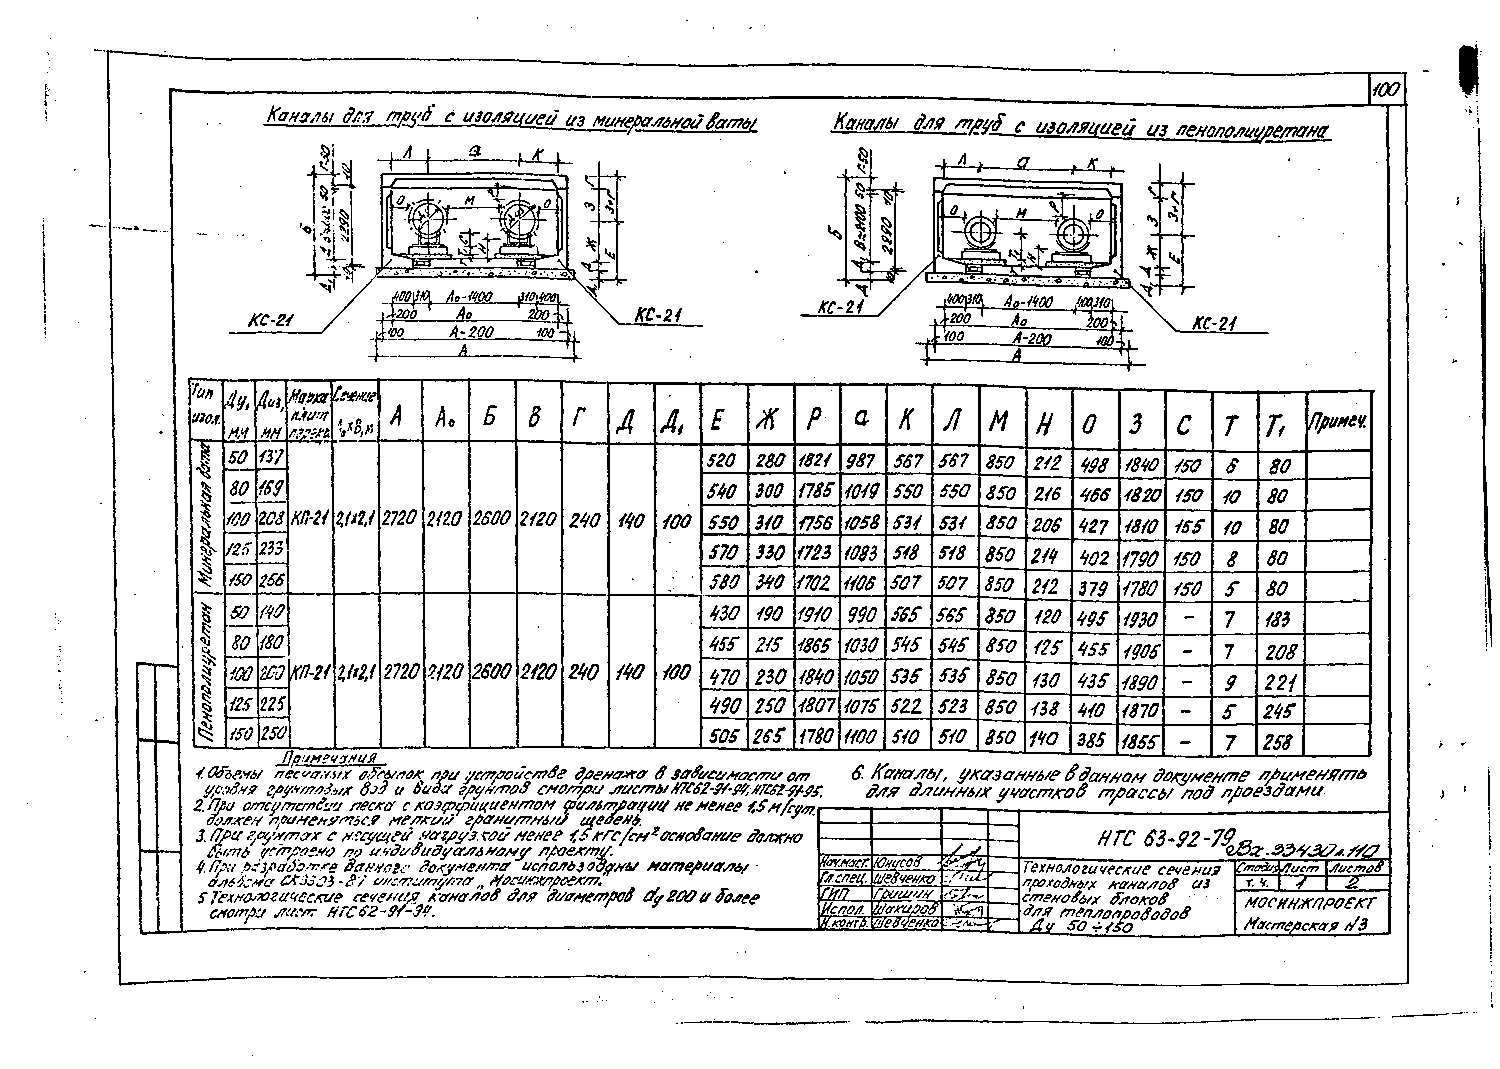 100
Каналы для труб с изоляцией из минеральной ваты
Каналы для труб с изоляцией из пенополиуретана
Л а К
О М О
КС-21 КС-21
400 310 А₀-1400 310 400
200 А₀ 200
100 А-200 100
А
Л а К
О М О
КС-21 КС-21
400 310 А₀-1400 400 310
200 А₀ 200
100 А-200 100
А
Тип изол. Ду, мм Диз, мм Марка плит перекр. Сечение А А₀ Б В Г Д Д₁ Е Ж Р а К Л М Н О З С Т Т₁ Примеч.
Минеральная вата КП-21 2,1х2,1 2720 2120 2600 2120 240 140 100
50 137 520 280 1821 987 567 567 850 212 498 1840 150 6 80
80 169 540 300 1785 1019 550 550 850 216 466 1820 150 10 80
100 208 550 310 1756 1058 531 531 850 206 427 1810 155 10 80
125 233 570 330 1723 1083 518 518 850 214 402 1790 150 8 80
150 256 580 340 1702 1106 507 507 850 212 379 1780 150 5 80
Пенополиуретан КП-21 2,1х2,1 2720 2120 2600 2120 240 140 100
50 140 430 190 1910 990 565 565 850 120 495 1930 – 7 183
80 180 455 215 1865 1030 545 545 850 125 455 1905 – 7 208
100 200 470 230 1840 1050 535 535 850 130 435 1890 – 9 221
125 225 490 250 1807 1075 522 523 850 138 410 1870 – 5 245
150 250 505 265 1780 1100 510 510 850 140 385 1855 – 7 258
Примечания
1. Объемы песчаных обсыпок при устройстве дренажа в зависимости от
уровня грунтовых вод и вида грунтов смотри листы НТС62-91-94, НТС62-91-95.
2. При отсутствии песка с коэффициентом фильтрации не менее 1,5 м/сут.
должен применяться мелкий гранитный щебень.
3. При грунтах с несущей нагрузкой менее 1,5 кгс/см² основание должно
быть устроено по индивидуальному проекту.
4. При разработке данного документа использованы материалы
альбома института „Мосинжпроект.
5 Технологические сечения каналов для диаметров dу 200 и более
смотри лист НТС 62-91-94.
6. Каналы, указанные в данном документе применять
для длинных участков трассы под проездами.
НТС 63-92-79
Вх.33430л110
Нач.маст. Юнусов
Гл.спец. Шевченко
ГИП Гришин
Испол. Шакиров
Н.контр. Шевченко
Технологические сечения
проходных каналов из
стеновых блоков
для теплопроводов
Ду 50÷150
Стадия Лист Листов
т.ч. 1 2
МОСИНЖПРОЕКТ
Мастерская №3